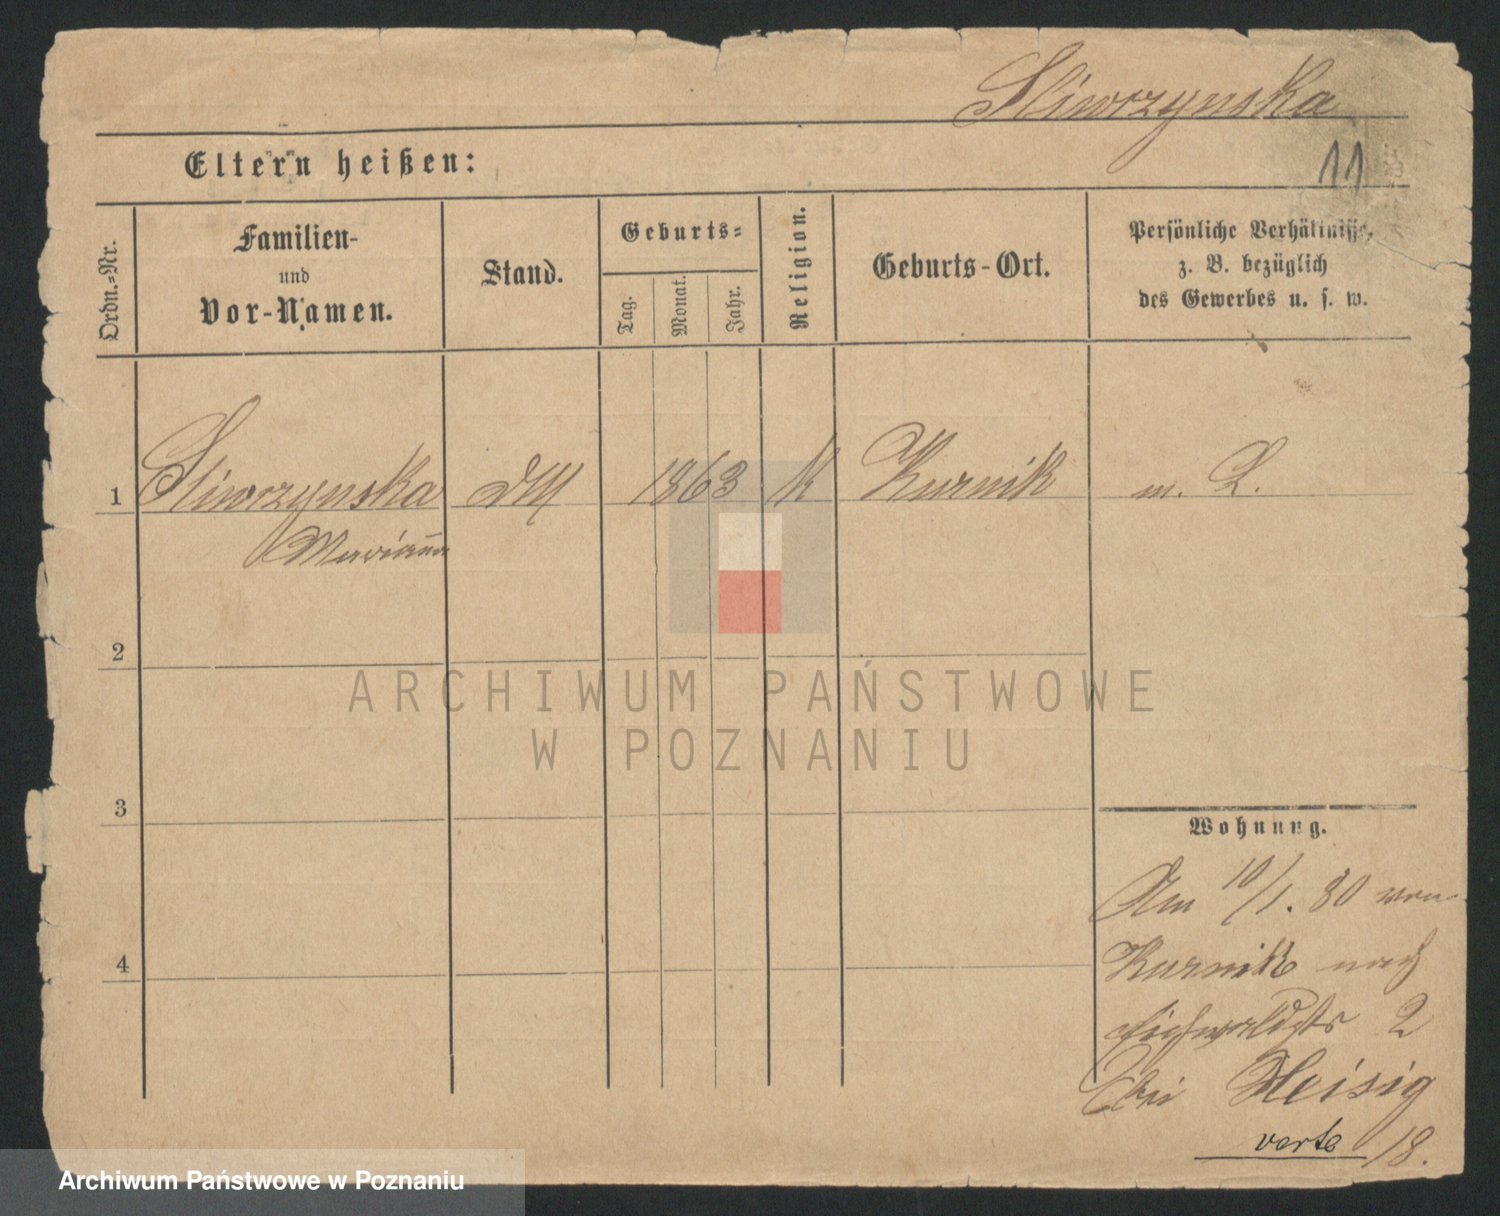 Sliwczynska
Eltern heißen:
11
Ordn.-Nr.
Familien-
und
Vor-Namen.
Stand.
Geburts-
Tag.
Monat.
Jahr.
Religion.
Geburts-Ort.
Persönliche Verhältnisse,
z. B. bezüglich
des Gewerbes u. s. w.
1 Sliwczynska 1863 K Kurnik m. L.
Marianna
2
ARCHIWUM PAŃSTWOWE
W POZNANIU
3
Wohnung.
Am 10/1. 80 von
Kurnik nach
4
2
bei Heisig
verte /18.
Archiwum Państwowe w Poznaniu